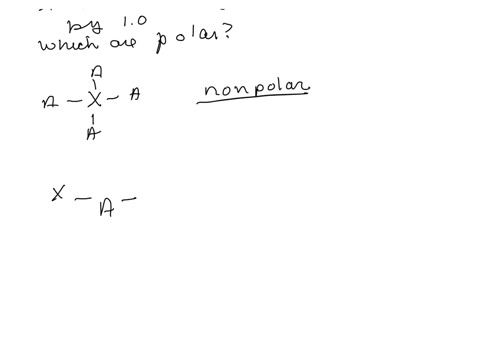 by 1.0
which are polar?
A
A - X - A
nonpolar
A
X - A -